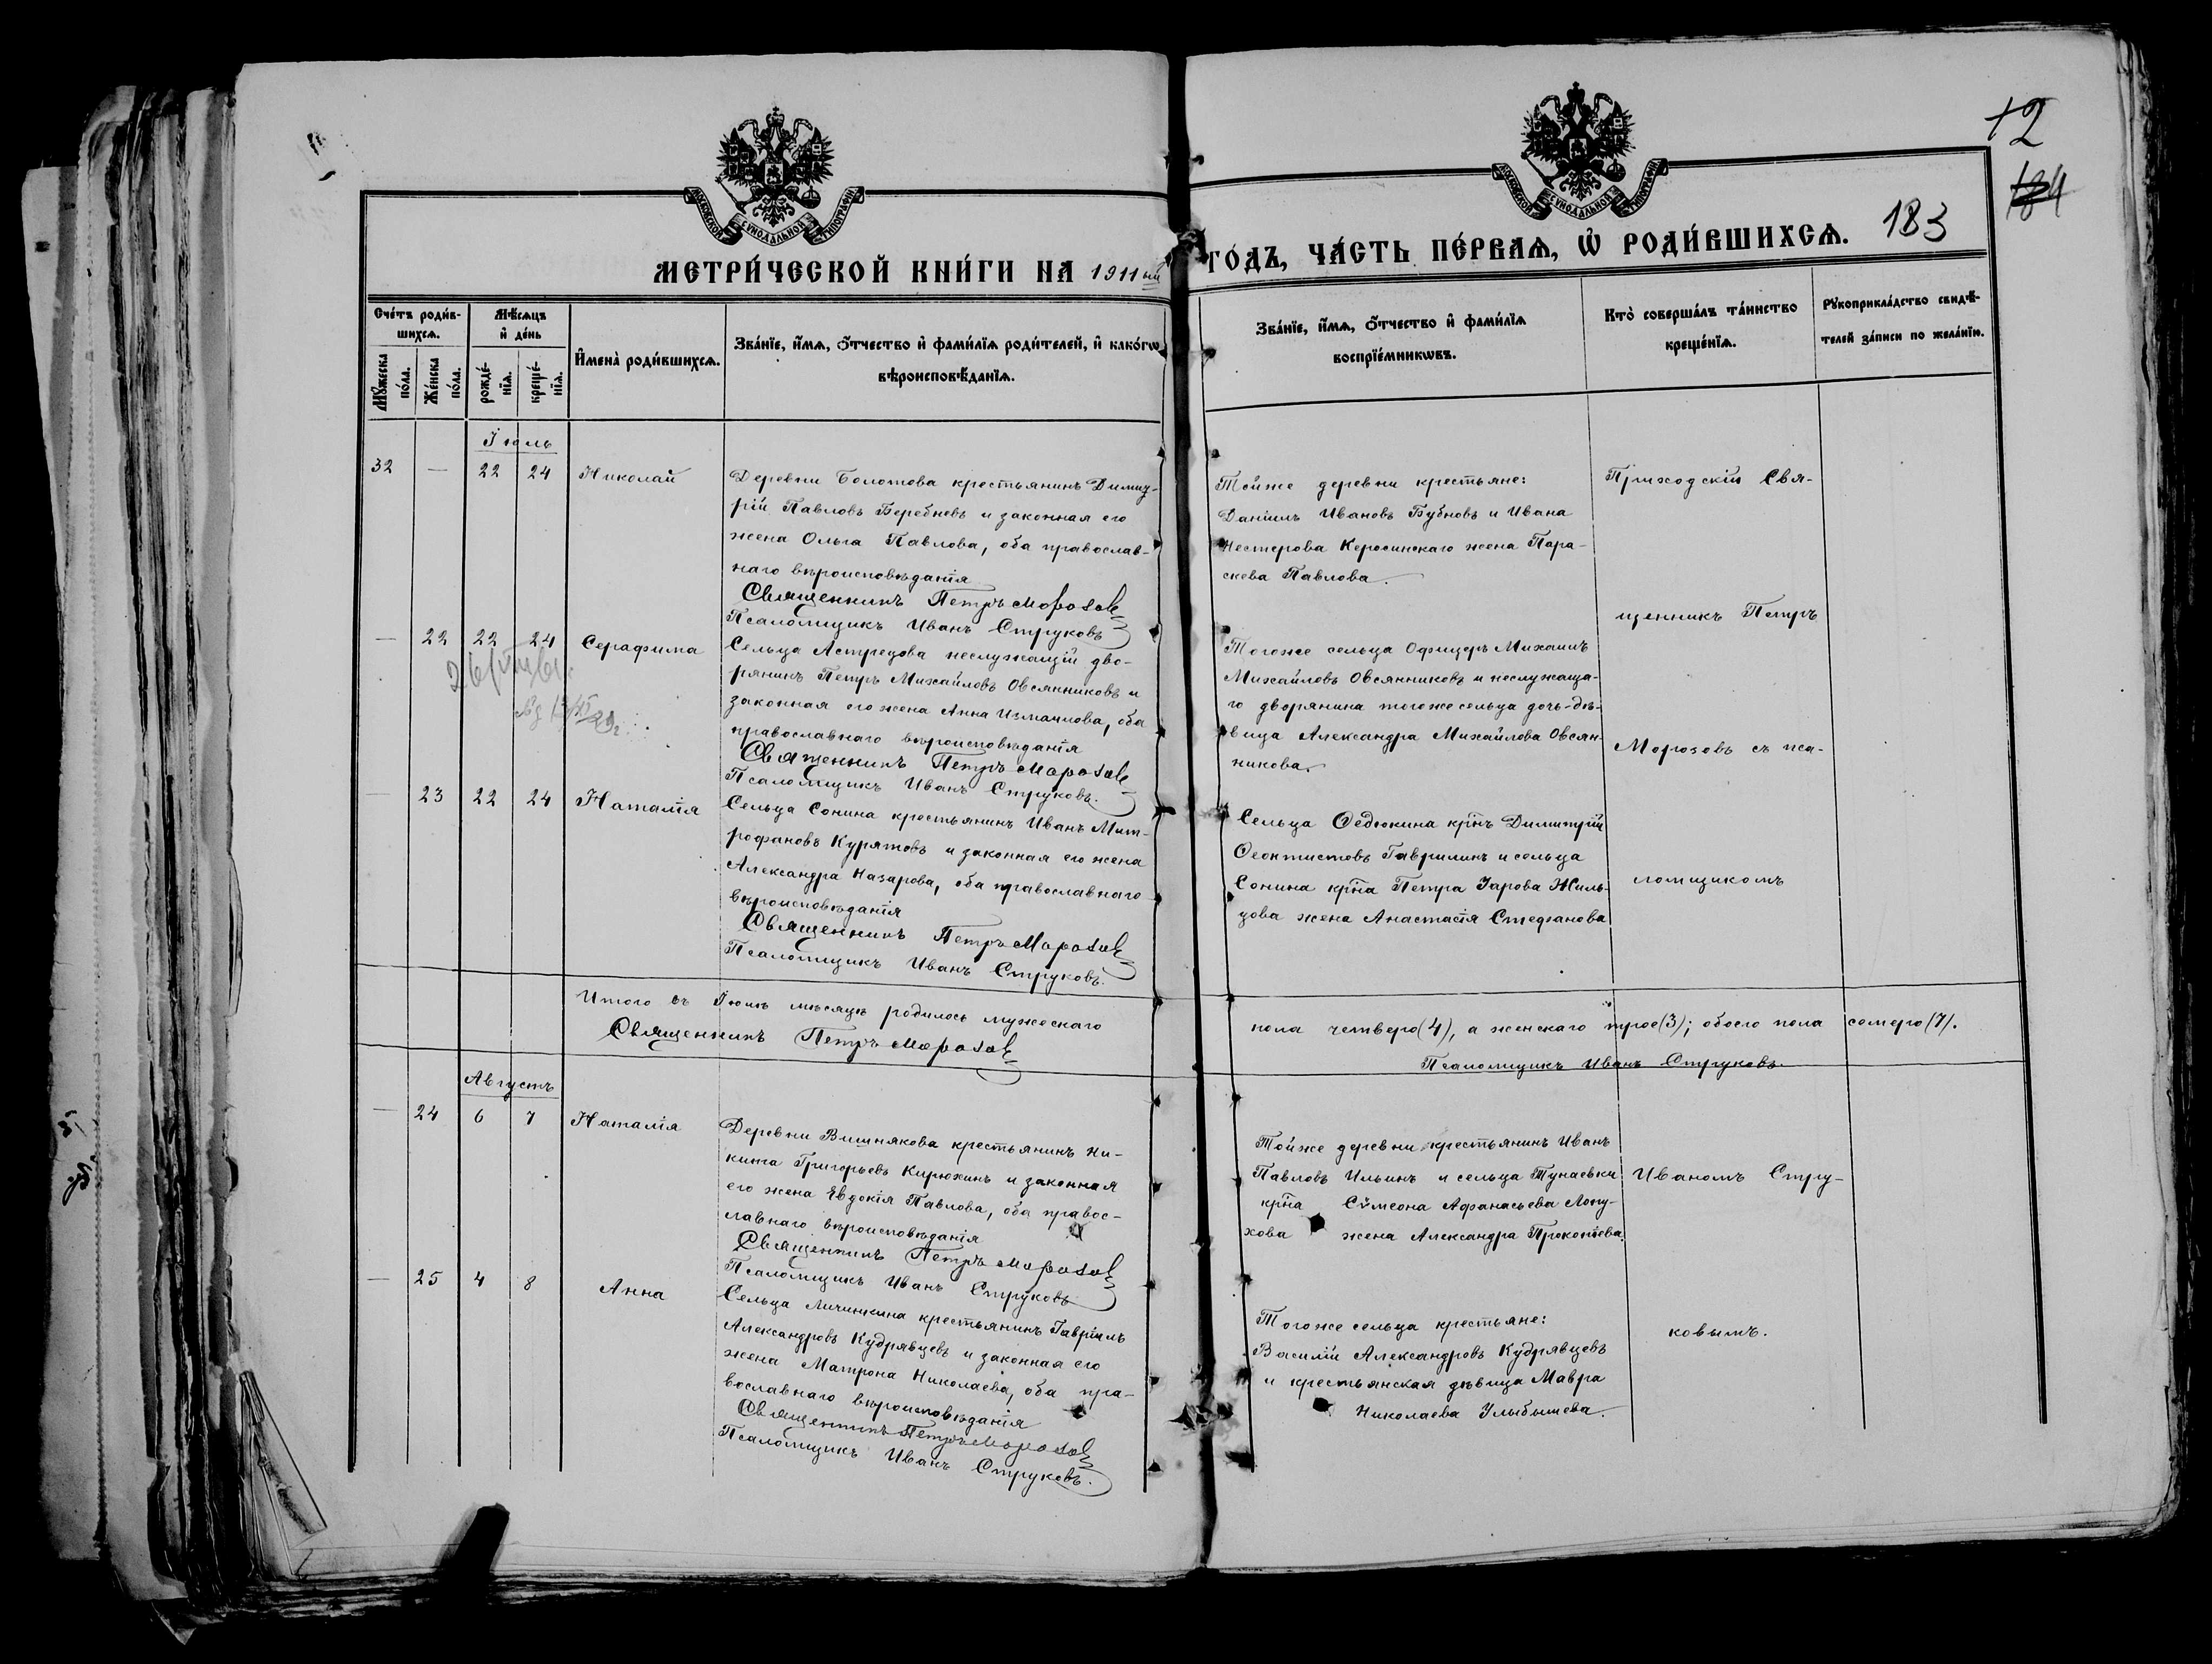 12
184
183
МОСКОВСКОЙ СѴНОДАЛЬНОЙ ТИПОГРАФІИ
МОСКОВСКОЙ СѴНОДАЛЬНОЙ ТИПОГРАФІИ
МЕТРИ́ЧЕСКОЙ КНИ́ГИ НА 1911ый
ГО́ДЪ, ЧА́СТЬ ПЕ́РВАѦ, Ѡ҆ РОДИ́ВШИХСѦ.
Сче́тъ роди́в-
шихсѧ.
Мꙋ́жеска по́ла.
Же́нска по́ла.
Мѣ́сѧцъ
и҆ де́нь
рожде́-
нїѧ.
креще́-
нїѧ.
И҆мена̀ роди́вшихсѧ.
Зва́нїе, и҆́мѧ, ѻ҆́тчество и҆ фами́лїѧ роди́телей, и҆ како́гѡ
вѣроисповѣ́данїѧ.
Зва́нїе, и҆́мѧ, ѻ҆́тчество и҆ фами́лїѧ
воспрїе́мникѡвъ.
Кто̀ соверша́лъ та́инство
креще́нїѧ.
Рꙋкоприкла́дство свидѣ́-
телей за́писи по жела́нїю.
Іюль
32 — 22 24 Николай
Деревни Болотова крестьянинъ Димит-
рій Павловъ Веребневъ и законная его
жена Ольга Павлова, оба православ-
наго вѣроисповѣданія
Священникъ Петръ Морозовъ
Псаломщикъ Иванъ Струковъ
Тойже деревни крестьяне:
Даніилъ Ивановъ Бубновъ и Ивана
Нестерова Керосинскаго жена Пара-
скева Павлова.
Приходскій Свя-
щенникъ Петръ
Морозовъ съ пса-
ломщикомъ
Иваномъ Стру-
ковымъ.
— 22 22 24 Серафима
Сельца Астрецова неслужащій дво-
рянинъ Петръ Михайловъ Овсянниковъ и
законная его жена Анна Измаилова, оба
православнаго вѣроисповѣданія
Священникъ Петръ Морозовъ
Псаломщикъ Иванъ Струковъ.
Тогоже сельца Офицеръ Михаилъ
Михайловъ Овсянниковъ и неслужаща-
го дворянина тогоже сельца дочь-дѣ-
вица Александра Михайлова Овсян-
никова.
— 23 22 24 Наталія
Сельца Сонина крестьянинъ Иванъ Мит-
рофановъ Курятовъ и законная его жена
Александра Назарова, оба православнаго
вѣроисповѣданія
Священникъ Петръ Морозовъ
Псаломщикъ Иванъ Струковъ.
Сельца Ѳедюкина крнъ Димитрій
Ѳеоктистовъ Гаврилинъ и сельца
Сонина крна Петра Уарова Жиль-
цова жена Анастасія Стефанова
Итого въ Іюлѣ мѣсяцѣ родилось мужескаго
пола четверо(4), а женскаго трое(3); обоего пола семеро(7).
Священникъ Петръ Морозовъ
Псаломщикъ Иванъ Струковъ.
Августъ
— 24 6 7 Наталія
Деревни Вишнякова крестьянинъ Ни-
кита Григорьевъ Кирюхинъ и законная
его жена Евдокія Павлова, оба правос-
лавнаго вѣроисповѣданія
Священникъ Петръ Морозовъ
Псаломщикъ Иванъ Струковъ
Тойже деревни крестьянинъ Иванъ
Павловъ Ильинъ и сельца Тунаевки
крна Сѵмеона Афанасьева Лопу-
хова жена Александра Прокопіева.
— 25 4 8 Анна
Сельца Личинкина крестьянинъ Гавріилъ
Александровъ Кудрявцевъ и законная его
жена Матрона Николаева, оба пра-
вославнаго вѣроисповѣданія
Священникъ Петръ Морозовъ
Псаломщикъ Иванъ Струковъ.
Тогоже сельца крестьяне:
Василій Александровъ Кудрявцевъ
и крестьянская дѣвица Мавра
Николаева Улыбышева.